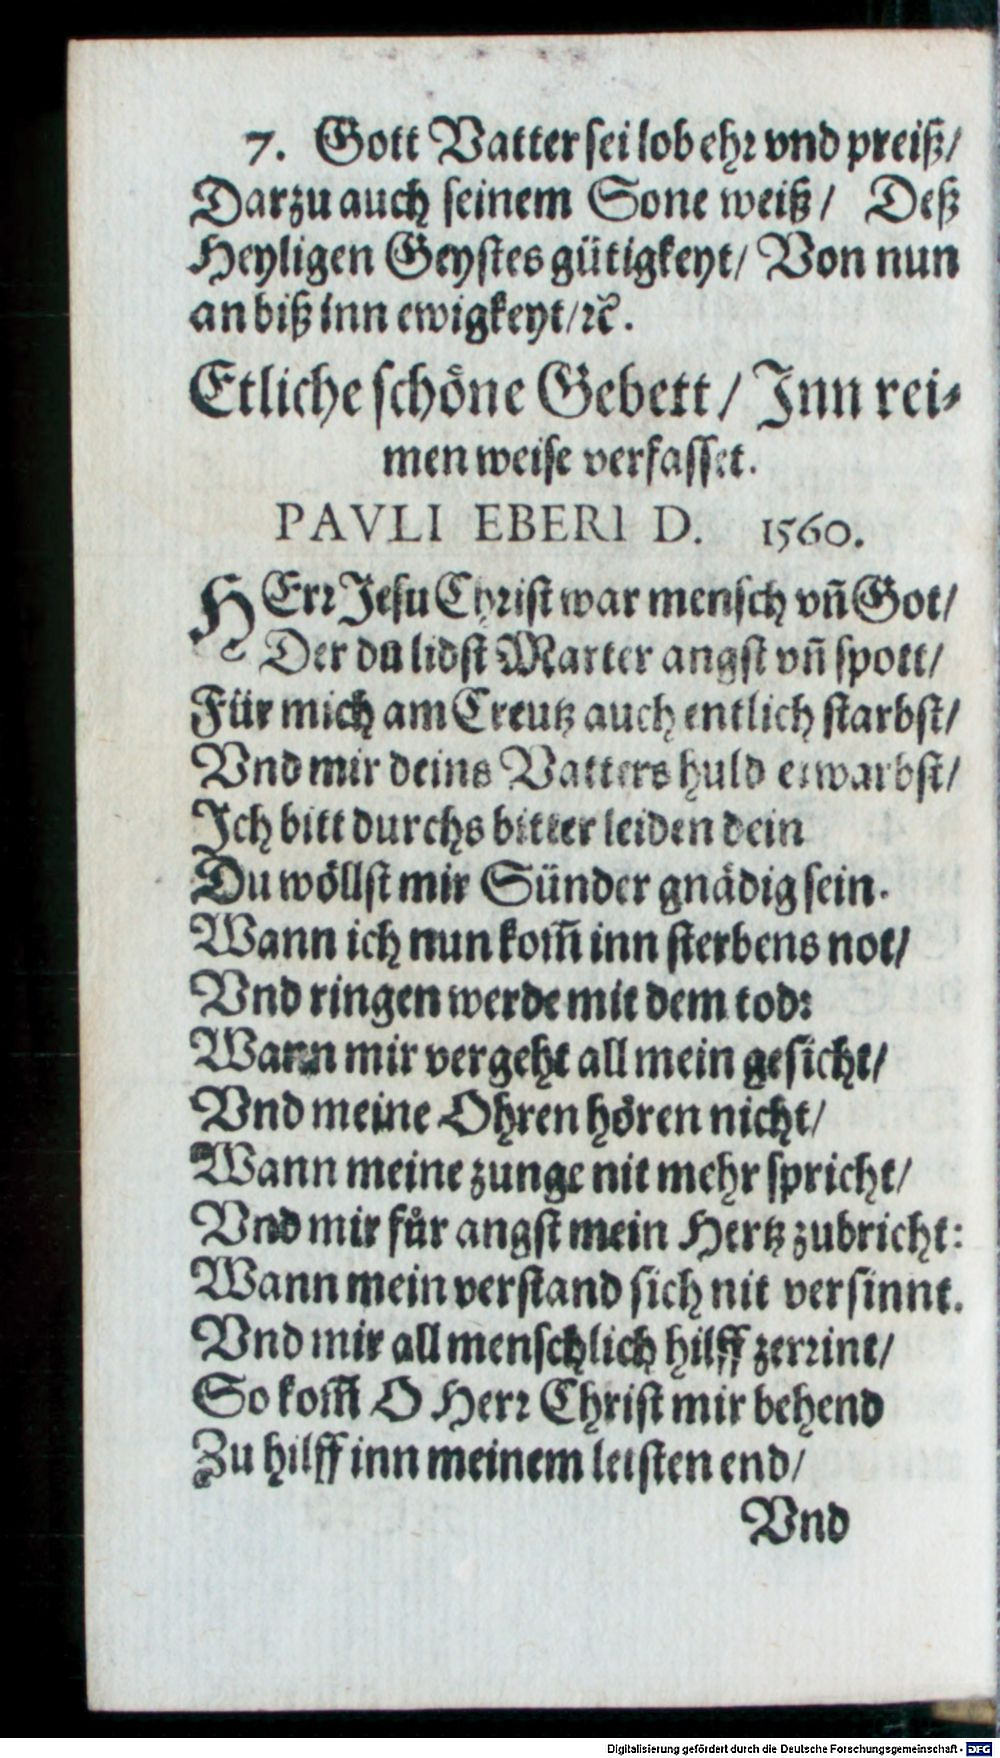 7. Gott Vatter sei lob ehr vnd preiß/
Darzu auch seinem Sone weiß/ Deß
Heyligen Geystes gütigkeyt/ Von nun
an biß inn ewigkeyt/ꝛc̃.
Etliche schöne Gebett/ Inn rei-
men weise verfasset.
PAVLI EBERI D. 1560.
HErr Jesu Christ war mensch vñ Got/
Der du lidst Marter angst vñ spott/
Für mich am Creutz auch entlich starbst/
Vnd mir deins Vatters huld erwarbst/
Ich bitt durchs bitter leiden dein
Du wöllst mir Sünder gnädig sein.
Wann ich nun kom̃ inn sterbens not/
Vnd ringen werde mit dem tod:
Wann mir vergeht all mein gesicht/
Vnd meine Ohren hören nicht/
Wann meine zunge nit mehr spricht/
Vnd mir für angst mein Hertz zubricht:
Wann mein verstand sich nit versinnt.
Vnd mir all menschlich hilff zerrint/
So kom̃ O Herr Christ mir behend
Zu hilff inn meinem leisten end/
Vnd
Digitalisierung gefördert durch die Deutsche Forschungsgemeinschaft - DFG